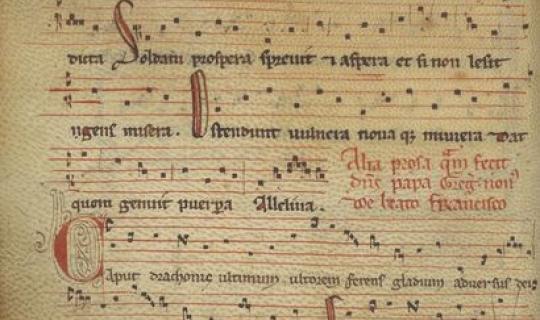 dicta Soldani prospera spreuit ⁊ aspera et si non lesit
ugens misera. Ostendunt uulnera noua qȝ munera
quom genuit puerpa Alleluia.
Alia prosa quam fecit
dns papa Greg. non
de beato Francisco
Caput drachonis ultimum ultorem ferens gladium aduersus